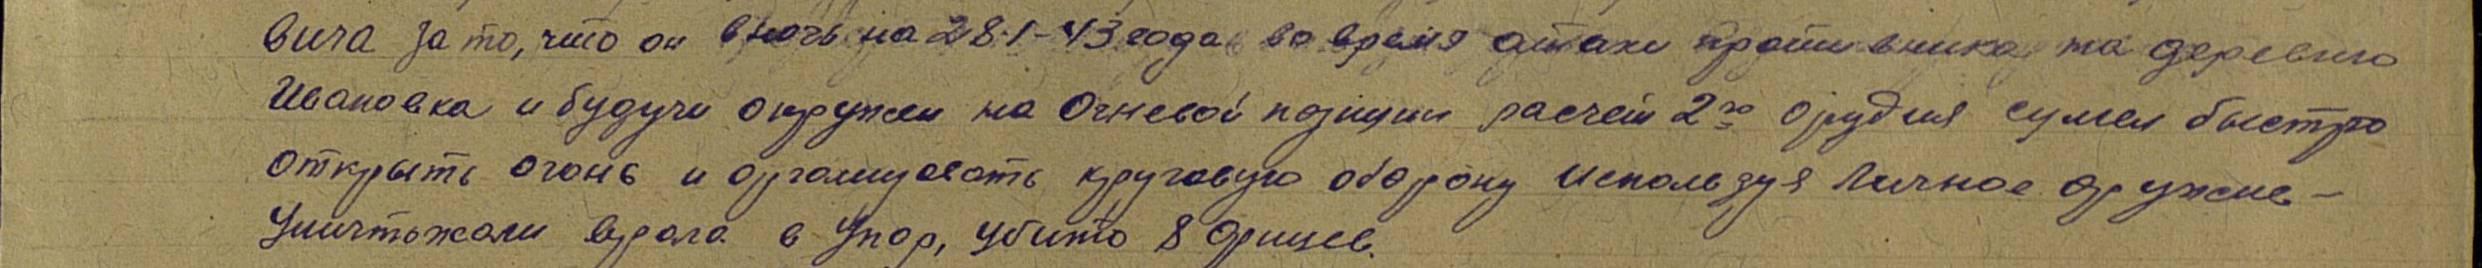 вича за то, что он в ночь на 28-1-43 года во время атаки противника на деревню
Ивановка и будучи окружен на Огневой позиции расчет 2го орудия сумел быстро
открыть огонь и организовать круговую оборону используя Личное оружие -
Уничтожали врага в Упор, убито 8 Фрицев.